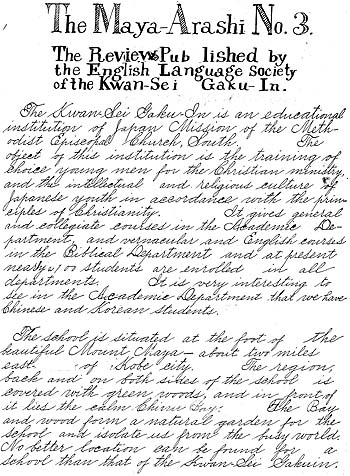 The Maya-Arashi No. 3.
The Review Pub lished by
the English Language Society
of the Kwan-Sei Gaku-In.
The Kwan-Sei Gaku-In is an educational
institution of Japan Mission of the Meth-
odist Episcopal Church, South. The
object of this institution is the training of
choice young men for the Christian ministry,
and the intellectual and religious culture of
Japanese youth in accordance with the prin-
ciples of Christianity. It gives general
and collegiate courses in the Academic De-
partment, and vernacular and English courses
in the Biblical Department and at present
nearly 00 students are enrolled in all
departments. It is very interesting to
see in the Academic Department that we have
Chinese and Korean students.
The school is situated at the foot of the
beautiful Mount Maya- about two miles
east of Kobe city. The region,
back and on both sides of the school is
covered with green woods, and in front of
it lies the calm Chinu Bay. The Bay
and wood form a natural garden for the
school and isolate us from the busy world.
No better location can be found for a
school than that of the Kwan-Sei Gakuin.